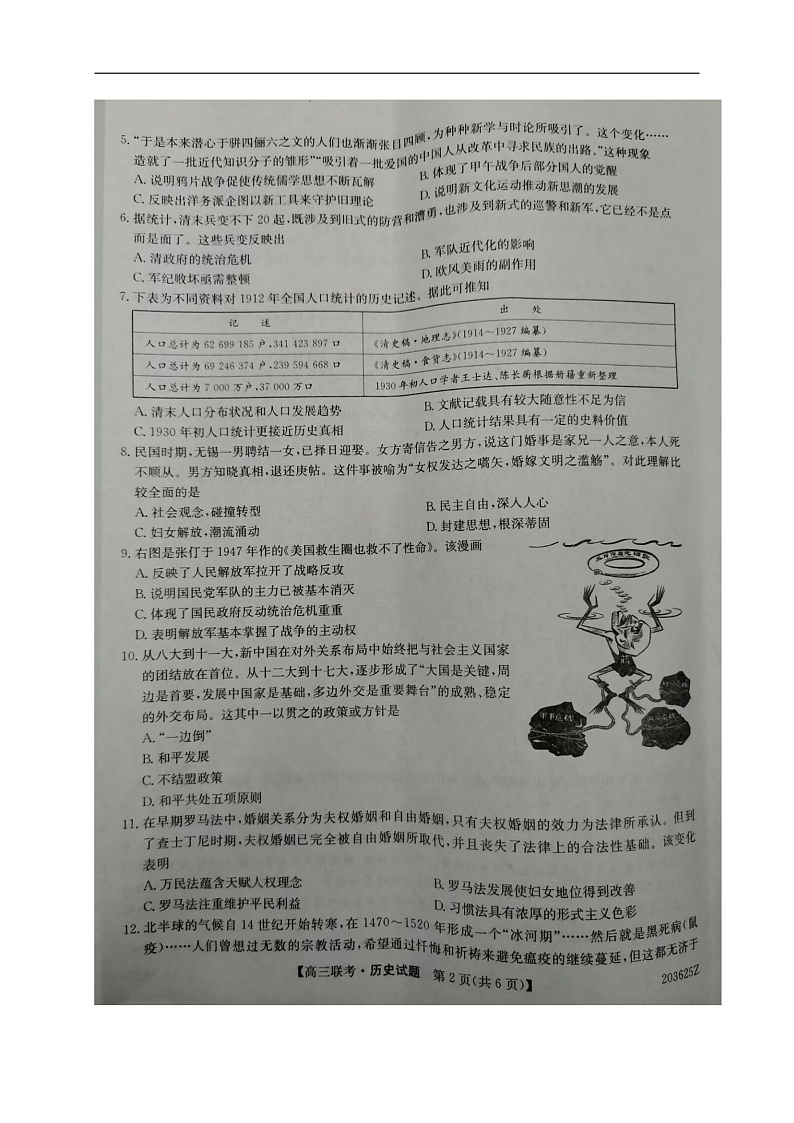 5. “于是本来潜心于骈四俪六之文的人们也渐渐张目四顾,为种种新学与时论所吸引了。这个变化……
造就了一批近代知识分子的雏形”“吸引着一批爱国的中国人从改革中寻求民族的出路。”这种现象
A. 说明鸦片战争促使传统儒学思想不断瓦解
B. 体现了甲午战争后部分国人的觉醒
C. 反映出洋务派企图以新工具来守护旧理论
D. 说明新文化运动推动新思潮的发展
6. 据统计,清末兵变不下20起,既涉及到旧式的防营和漕勇,也涉及到新式的巡警和新军,它已经不是点
而是面了。这些兵变反映出
A. 清政府的统治危机
B. 军队近代化的影响
C. 军纪败坏亟需整顿
D. 欧风美雨的副作用
7. 下表为不同资料对1912年全国人口统计的历史记述。据此可推知
记 述 出 处
人口总计为62 699 185户,341 423 897口 《清史稿·地理志》(1914~1927编纂)
人口总计为69 246 374户,239 594 668口 《清史稿·食货志》(1914~1927编纂)
人口总计为7 000万户,37 000万口 1930年初人口学者王士达、陈长蘅根据册籍重新整理
A. 清末人口分布状况和人口发展趋势
B. 文献记载具有较大随意性不足为信
C. 1930年初人口统计更接近历史真相
D. 人口统计结果具有一定的史料价值
8. 民国时期,无锡一男聘结一女,已择日迎娶。女方寄信告之男方,说这门婚事是家兄一人之意,本人死
不顺从。男方知晓真相,退还庚帖。这件事被喻为“女权发达之嚆矢,婚嫁文明之滥觞”。对此理解比
较全面的是
A. 社会观念,碰撞转型
B. 民主自由,深入人心
C. 妇女解放,潮流涌动
D. 封建思想,根深蒂固
9. 右图是张仃于1947年作的《美国救生圈也救不了性命》。该漫画
A. 反映了人民解放军拉开了战略反攻
B. 说明国民党军队的主力已被基本消灭
C. 体现了国民政府反动统治危机重重
D. 表明解放军基本掌握了战争的主动权
军事危机
10. 从八大到十一大,新中国在对外关系布局中始终把与社会主义国家
的团结放在首位。从十二大到十七大,逐步形成了“大国是关键,周
边是首要,发展中国家是基础,多边外交是重要舞台”的成熟、稳定
的外交布局。这其中一以贯之的政策或方针是
A. “一边倒”
B. 和平发展
C. 不结盟政策
D. 和平共处五项原则
11. 在早期罗马法中,婚姻关系分为夫权婚姻和自由婚姻,只有夫权婚姻的效力为法律所承认。但到
了查士丁尼时期,夫权婚姻已完全被自由婚姻所取代,并且丧失了法律上的合法性基础。该变化
表明
A. 万民法蕴含天赋人权理念
B. 罗马法发展使妇女地位得到改善
C. 罗马法注重维护平民利益
D. 习惯法具有浓厚的形式主义色彩
12. 北半球的气候自14世纪开始转寒,在1470~1520年形成一个“冰河期”……然后就是黑死病(鼠
疫)……人们曾想过无数的宗教活动,希望通过忏悔和祈祷来避免瘟疫的继续蔓延,但这都无济于
【高三联考·历史试题 第2页(共6页)】
203625Z